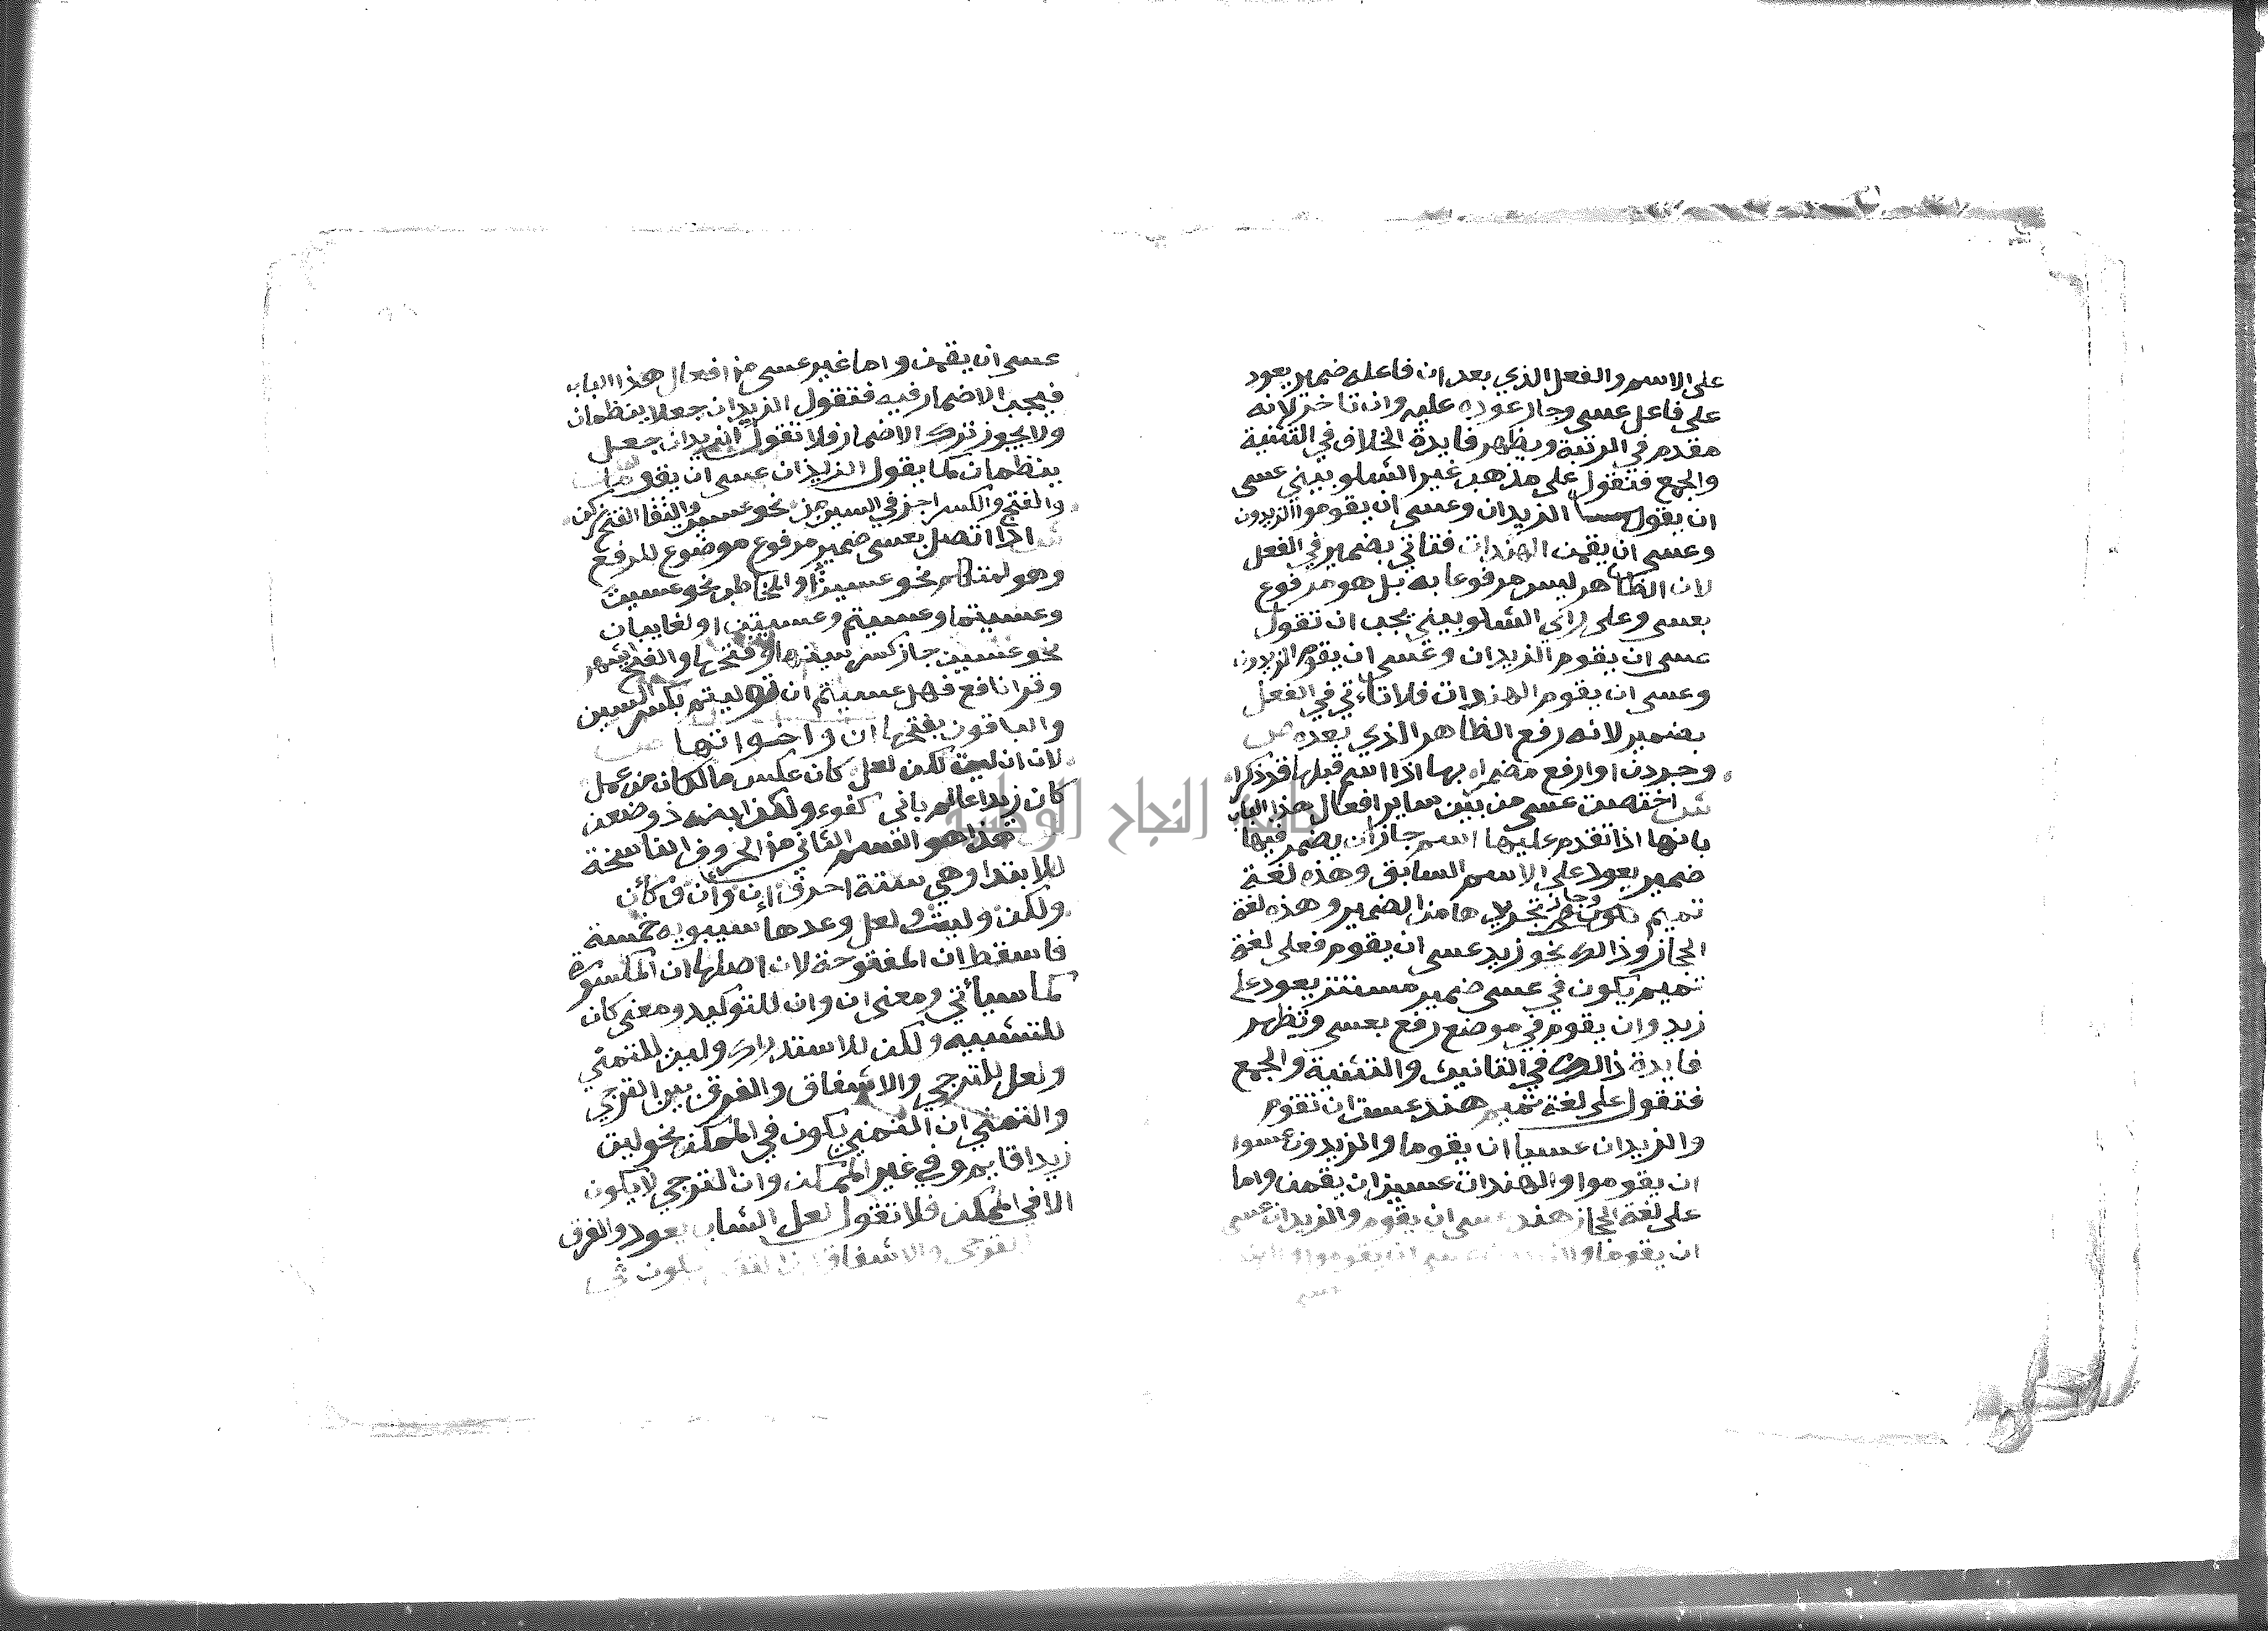 على الاسم والفعل الذي بعد ان فاعله ضمير يعود
على فاعل عسى وجاز عوده عليه وان تاخر لانه
مقدم في الرتبة ويظهر فايدة الخلاف في التثنية
والجمع فتقول على مذهب غير الشلوبيني عسى
ان يقوما الزيدان وعسى ان يقوموا الزيدون
وعسى ان يقمن الهندات فتاتي بضمير في الفعل
لان الظاهر ليس مرفوعا به بل هو مرفوع
بعسى وعلى راي الشلوبيني يجب ان تقول
عسى ان يقوم الزيدان وعسى ان يقوم الزيدون
وعسى ان يقوم الهندات فلا تاءتي في الفعل
بضمير لانه رفع الظاهر الذي بعده ص
وجردن او ارفع مضمرا بها اذا اسم قبلها قد ذكرا
ش اختصت عسى من بين ساير افعال هذا الباب
بانها اذا تقدم عليها اسم جاز ان يضمر فيها
ضمير يعود على الاسم السابق وهذه لغة
تميم وجاز تجريدها من الضمير وهذه لغة
الحجاز وذالك نحو زيد عسى ان يقوم فعلى لغة
تميم يكون في عسى ضمير مستتر يعود على
زيد وان يقوم في موضع رفع بعسى وتظهر
فايدة ذالك في التانيث والتثنية والجمع
فتقول على لغة تميم هند عست ان تقوم
والزيدان عسيا ان يقوما والزيدون عسوا
ان يقوموا والهندات عسين ان يقمن واما
على لغة الحجاز هند عسى ان يقوم والزيدان عسى
ان يقوما والزيدون عسى ان يقوموا والهندات
عسى
عسى ان يقمن واما غير عسى من افعال هذا الباب
فيجب الاضمار فيه فتقول الزيدان جعلا ينظمان
ولا يجوز ترك الاضمار فلا تقول الزيدان جعل
ينظمان كما يقول الزيدان عسى ان يقوما ص
والفتح والكسر اجز في السين من نحو عسيت وانتقا الفتح زكن
ش اذا اتصل بعسى ضمير مرفوع موضوع للرفع
وهو لمتكلم نحو عسيت او المخاطب نحو عسيت
وعسيتما وعسيتم وعسيتن او لغايبات
نحو عسين جاز كسر سينها وفتحها والفتح اشهر
وقرا نافع فهل عسيتم ان توليتم بكسر السين
والباقون بفتحها ان واخواتها ص
لان ان ليت لكن لعل كان عكس ما لكان من عمل
كان زيدا عالم باني كفوء ولكن ابنه ذو ضغن
هذا هو القسم الثاني من الحروف الناسخة
للابتدا وهي ستة احرف إن وأن وكأن
ولكن وليت ولعل وعدها سيبويه خمسة
فاسقط ان المفتوحة لان اصلها ان المكسورة
كما سيأتي ومعنى ان وان للتوكيد ومعنى كان
للتشبيه ولكن للاستدراك وليت للتمني
ولعل للترجي والاشفاق والفرق بين الترجي
والتمني ان التمني يكون في الممكن نحو ليت
زيدا قايم وفي غير الممكن وان الترجي لا يكون
الا في الممكن فلا تقول لعل الشباب يعود والفرق
الترجي والاشفاق ان يكون في
جامعة النجاح الوطنية